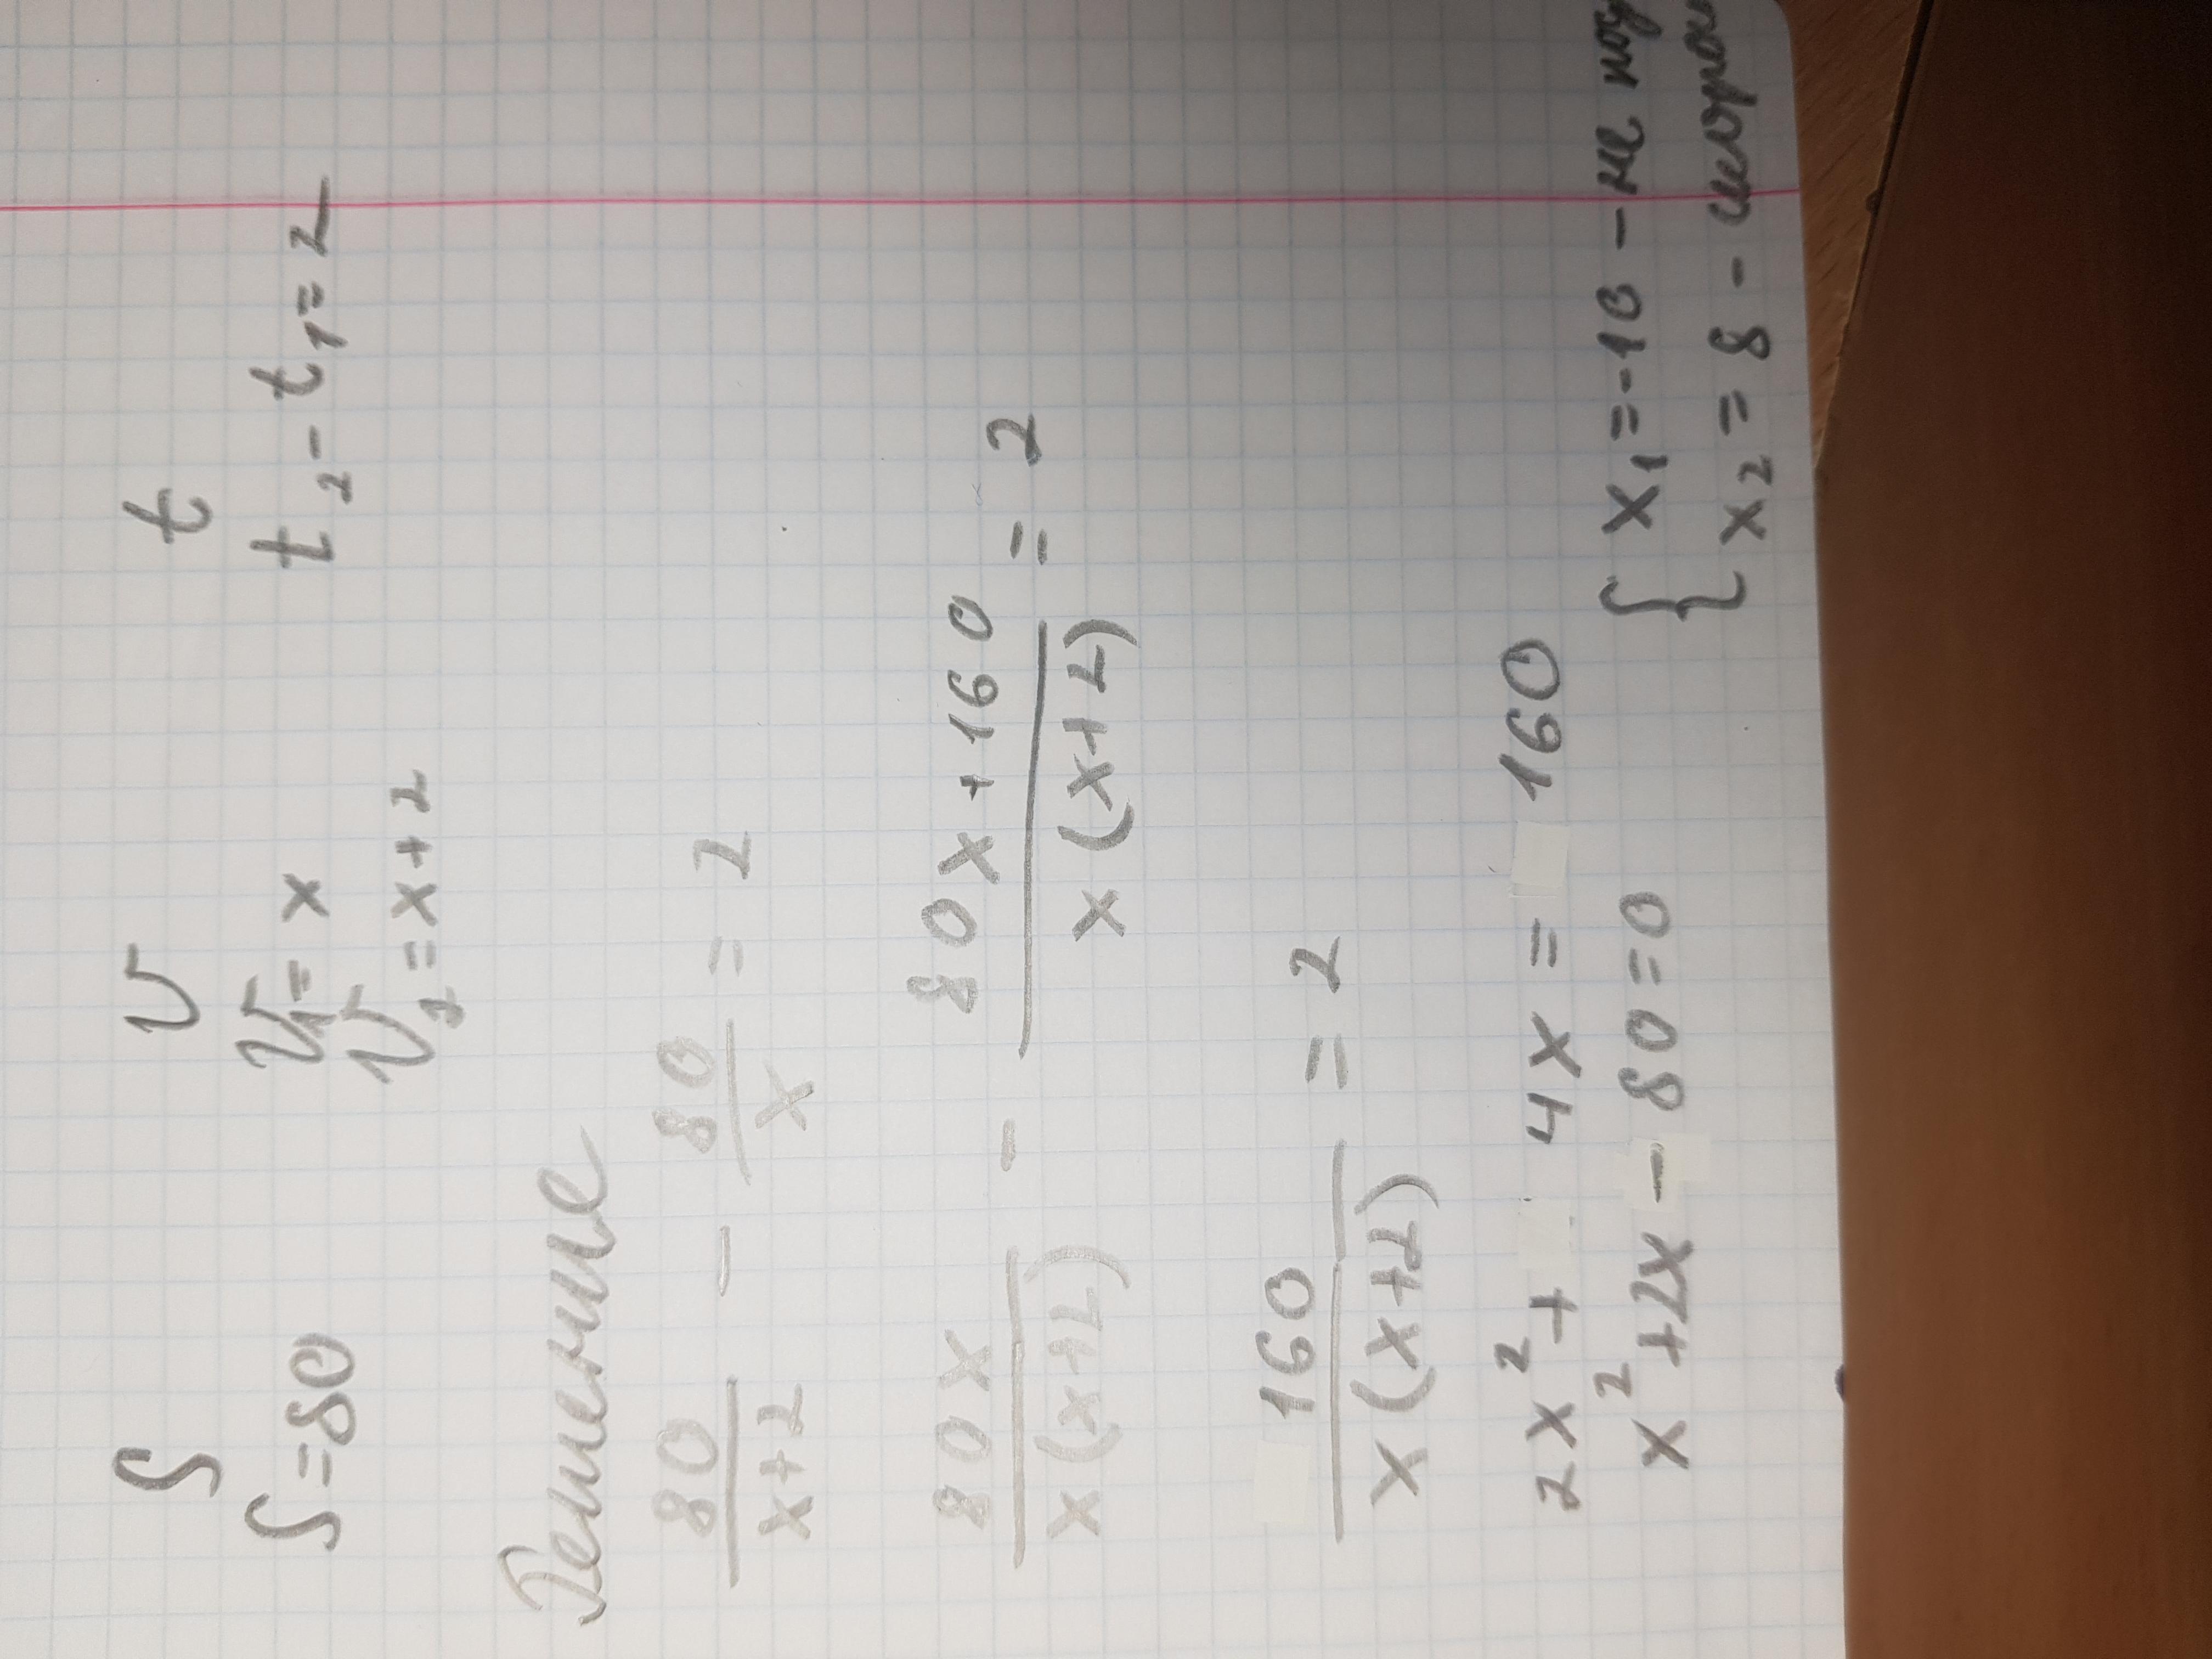 S V t
S=80 V₁=x t₂-t₁=2
V₂=x+2
Решение
80/(x+2) - 80/x = 2
80x/(x(x+2)) - (80x+160)/(x(x+2)) = 2
160/(x(x+2)) = 2
2x² + 4x = 160
x²+2x-80=0 { x₁=-10 - не
x₂=8 -